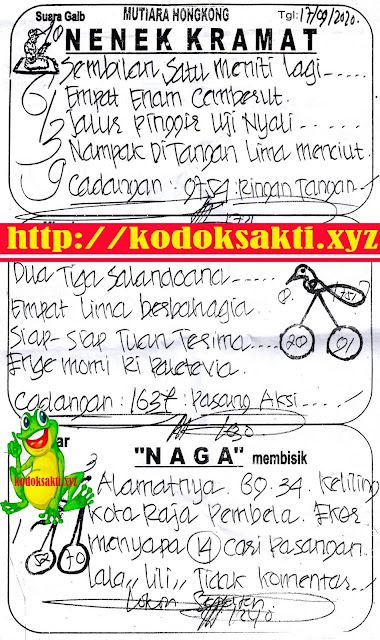 Suara Gaib MUTIARA HONGKONG Tgl: 17/09/2020.
NENEK KRAMAT
Sembilan Satu meniti lagi-----
Empat Enam Cemberut.
Jalur Pinggir Uji Nyali-----
Nampak Di Tangan Lima menciut.
Cadangan: 9754: Ringan Tangan
http://kodoksakti.xyz
Dua Tiga
Empat Lima berbahagia
Siap-Siap Tuan Terima----
20 01
Cadangan: 1637: Pasang Aksi----
kodoksakti.xyz
"NAGA" membisik
Alamatnya. 89.34. Keliling
Kota Raja Pembela. Ekor
menyapa 14 cari Pasangan
lala,, lili,, Tidak komentar